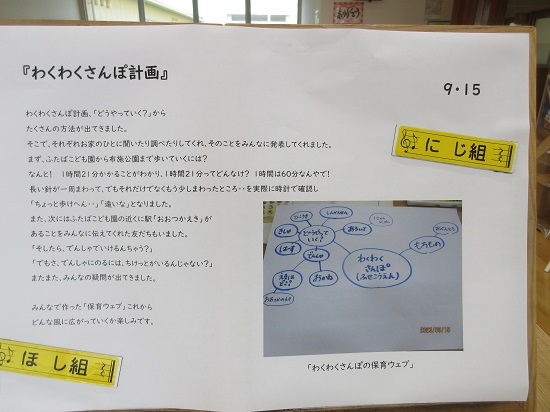 ありがとう
『わくわくさんぽ計画』
9・15
わくわくさんぽ計画、「どうやっていく?」から
たくさんの方法が出てきました。
そこで、それぞれお家のひとに聞いたり調べたりしてくれ、そのことをみんなに発表してくれました。
まず、ふたばこども園から布施公園まで歩いていくには?
なんと! 1時間21分かかることがわかり、1時間21分ってどんなけ? 1時間は60分なんやで!
長い針が一周まわって、でもそれだけでなくもう少しまわったところ・・を実際に時計で確認し
「ちょっと歩けへん・・」「遠いな」となりました。
また、次にはふたばこども園の近くに駅「おおつかえき」が
あることをみんなに伝えてくれた友だちもいました。
「そしたら、でんしゃでいけるんちゃう?」
「でもさ、でんしゃにのるには、ちけっとがいるんじゃない?」
またまた、みんなの疑問が出てきました。
みんなで作った「保育ウェブ」これから
どんな風に広がっていくか楽しみです。
にじ組
ほし組
しんかんせん
きしゃ
どうやって
いく?
あるいて
ばす
でんしゃ
おかね
わくわく
さんぽ
(ふせこうえん)
もちもの
2023/09/15
「わくわくさんぽの保育ウェブ」